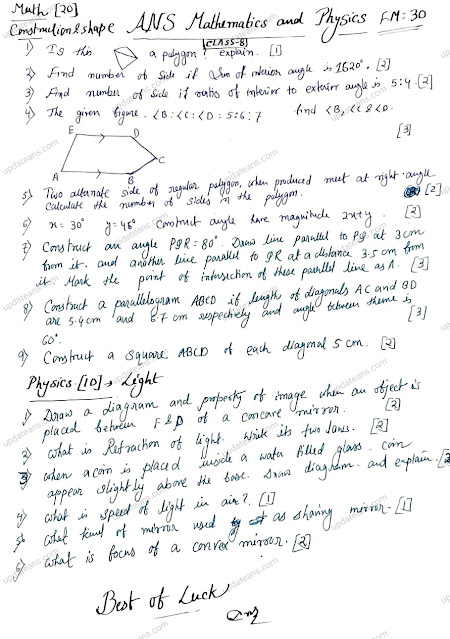 Math [20]
Construction & shape ANS Mathematics and Physics F.M = 30
CLASS-8
1) Is this a polygon? explain. [1]
2) Find number of side if sum of interior angle is 1620°. [2]
3) Find number of side if ratio of interior to exterior angle is 5:4. [2]
4) The given figure. <B:<C:<D = 5:6:7 find <B, <C & <D.
[3]
E D
C
A B
5) Two alternate side of regular polygon, when produced meet at right-angle [2]
Calculate the number of sides in the polygon.
6) x = 30° y = 45° Construct angle have magnitude 2x+y. [2]
7) Construct an angle PQR = 80°. Draw line parallel to PQ at 3cm
from it. and another line parallel to QR at a distance 3.5 cm from
it. Mark the point of intersection of these parallel line as A. [3]
8) Construct a parallelogram ABCD if length of diagonals AC and BD
are 5.4 cm and 6.7 cm respectively and angle between theme is
60°. [3]
9) Construct a square ABCD of each diagonal 5 cm. [2]
Physics [10] → Light
1) Draw a diagram and property of image when an object is
placed between F & P of a concave mirror. [2]
2) What is Refraction of light. Write its two laws. [2]
3) when a coin is placed inside a water filled glass. coin
appear slightly above the base. Draw diagram. and explain. [2]
4) what is speed of light in air? [1]
5) what kind of mirror used as shaving mirror. [1]
6) what is focus of a convex mirror. [2]
Best of Luck
updateans.com